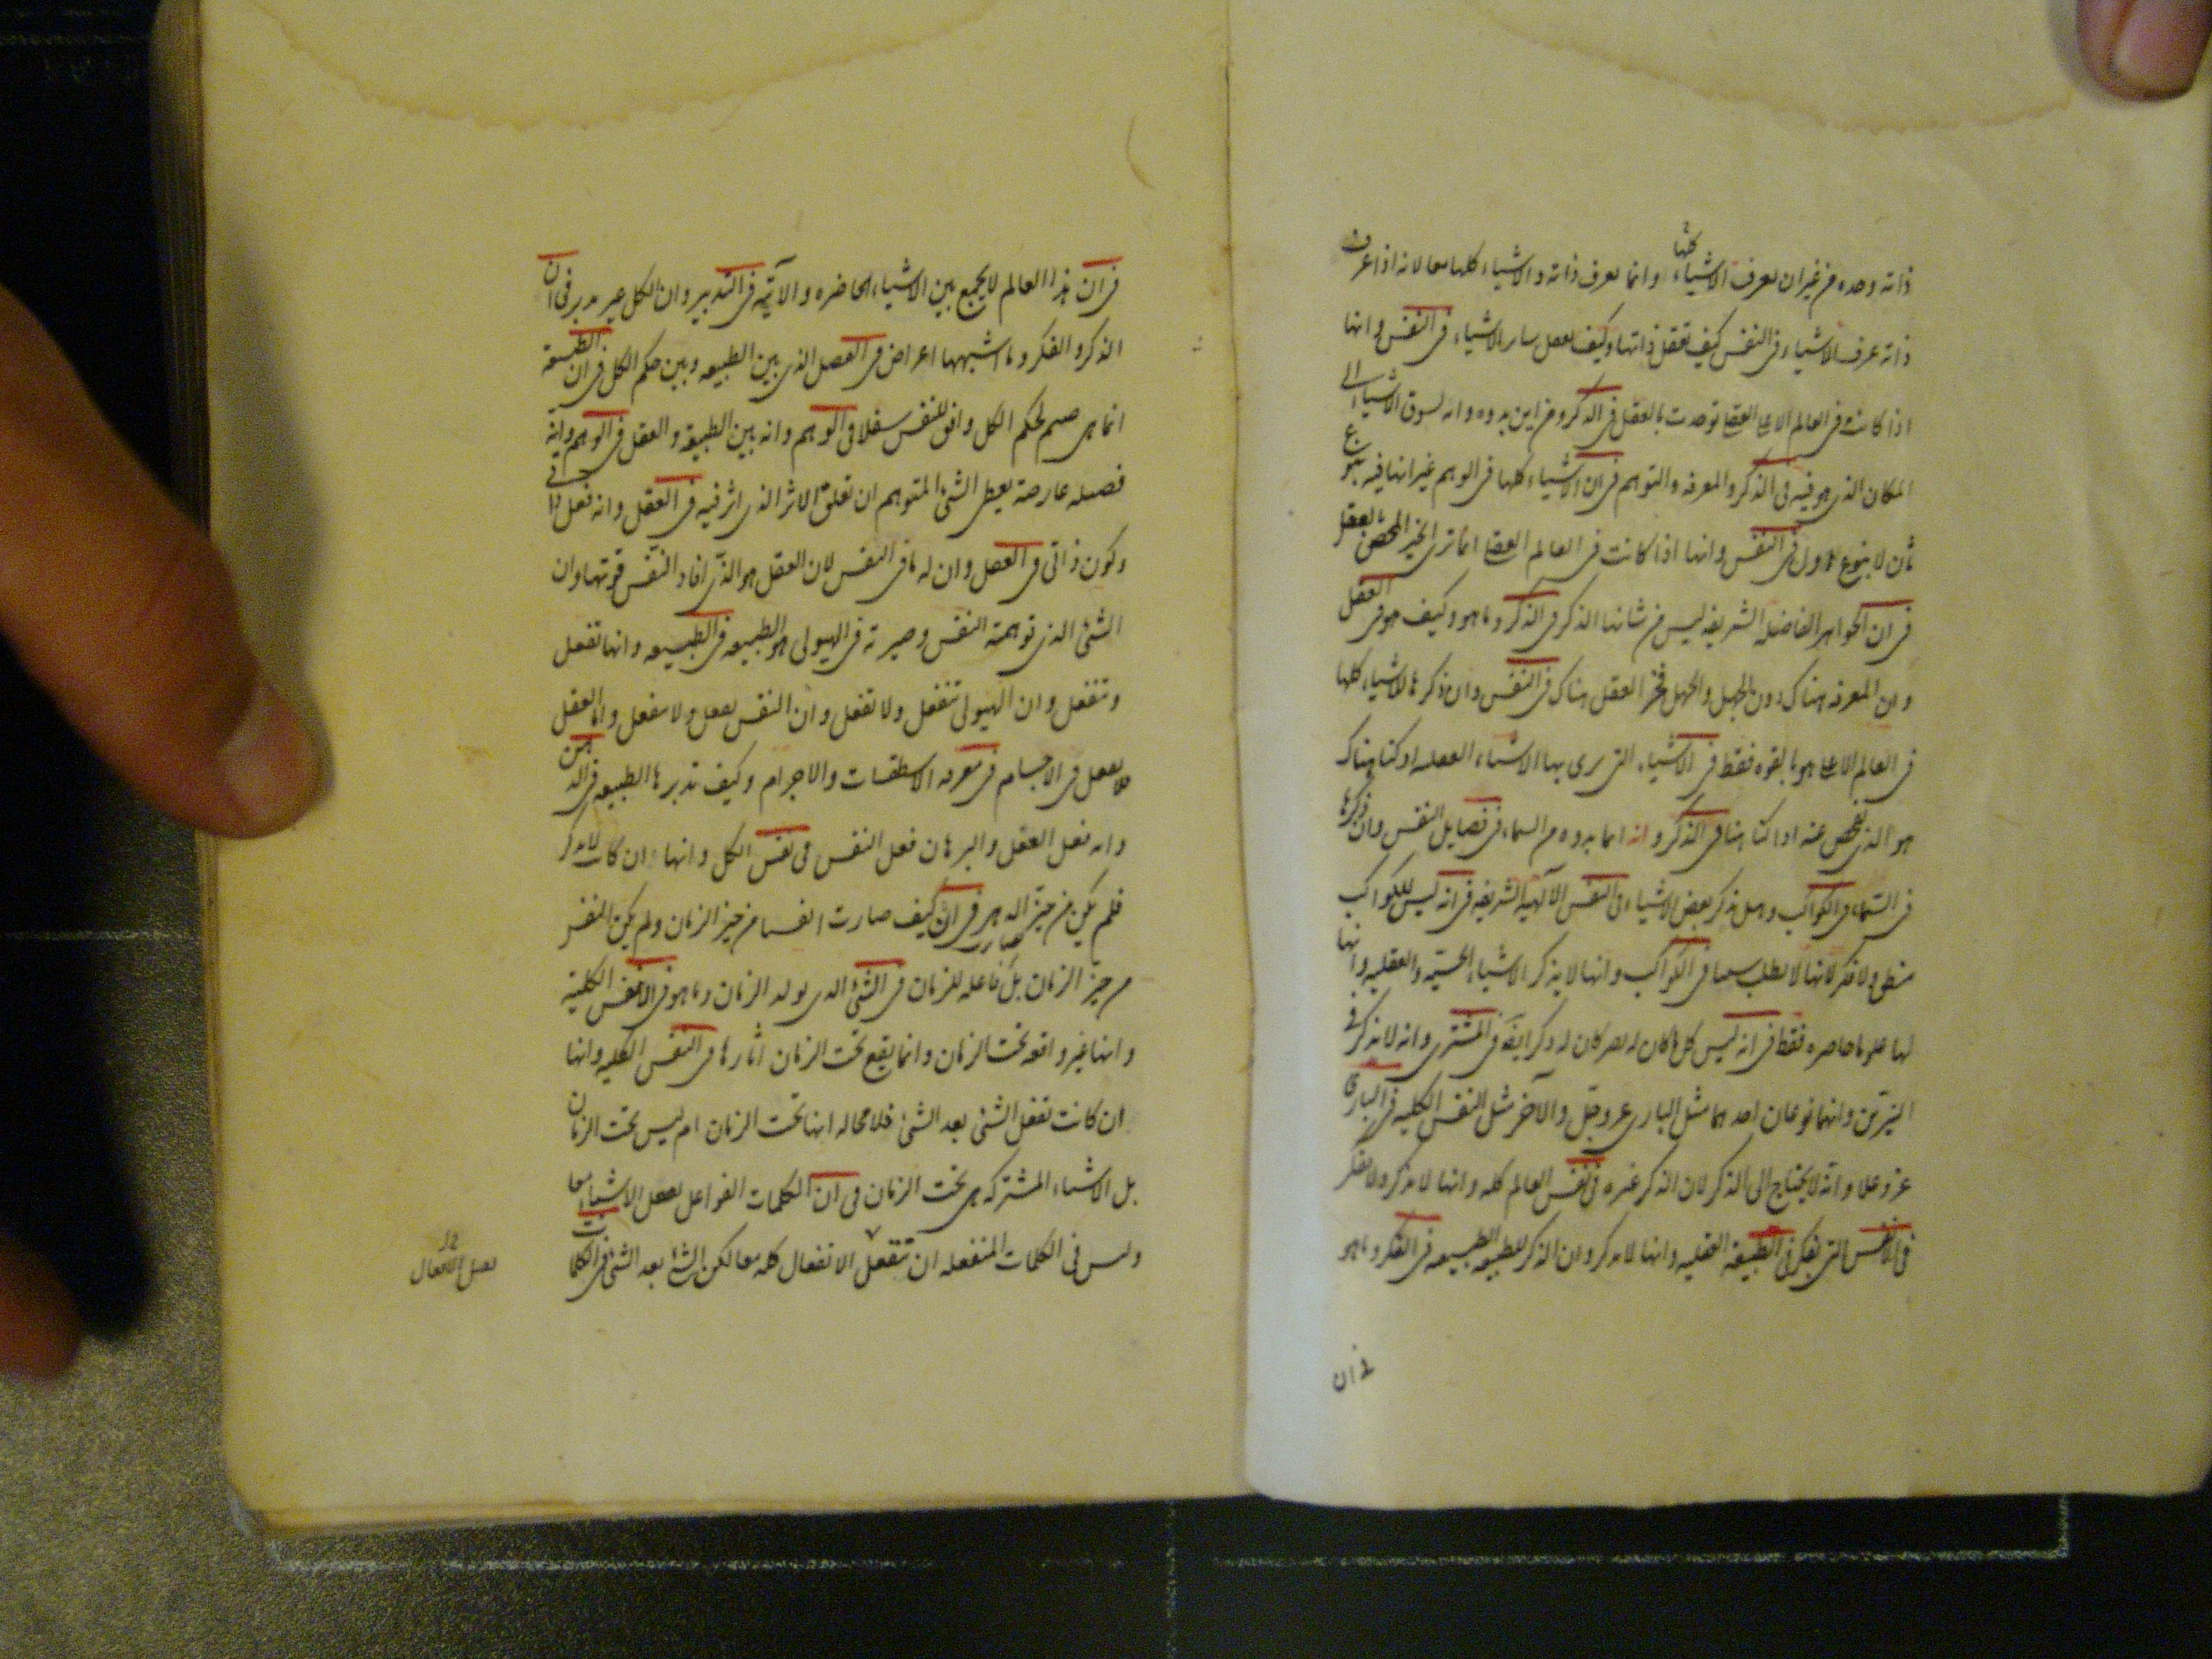 ذاته وحده من غير ان يعرف الاشياء كلها وانما يعرف ذاته والاشياء كلها معا لانه اذا عرف
ذاته عرف الاشياء فى النفس كيف تعقل ذاتها وكيف تعقل ساير الاشياء فى النفس وانها
اذا كانت فى العالم الاعلى العقلى توحدت بالعقل فى الذكر ومن اين بدوه وانه يسوق الاشياء الى
المكان الذى هو فيه فى الذكر والمعرفه والتوهم فى ان الاشياء كلها فى الوهم غير انها فيه بنوع
ثان لا بنوع اول فى النفس وانها اذا كانت فى العالم العقلى انما ترى الخير المحض بالعقل
فى ان الجواهر الفاضله الشريفه ليس من شانها الذكر فى الذكر وما هو وكيف هو فى العقل
وان المعرفه هناك دون الجهل والجهل فخر العقل هناك فى النفس وان ذكرها للاشياء كلها
فى العالم الاعلى هو بالقوه فقط فى الاشياء التى نرى بها الاشياء العقليه اذ كنا هناك
هو الذى نفحص عنه اذا كنا هنا فى الذكر وانه انما بدوه من السماء فى فضايل النفس وان ذكرها
فى السماء فى الكواكب وهل تذكر بعض الاشياء فى النفس الآلهية الشريفه فى انه ليس للكواكب
منطق ولا فكر لانها لا تطلب شيئا فى الكواكب وانها لا تذكر الاشياء الحسيه والعقليه وانها
لها علوما حاضره فقط فى انه ليس كل ما كان له بصر كان له ذكر ايضا فى المشترى وانه لا يذكر فى
النيرين وانهما نوعان احدهما مثل البارى عز وجل والآخر مثل النفس الكليه فى البارى
عز وعلا وانه لا يحتاج الى الذكر لان الذكر غيره فى نفس العالم كله وانها لا تذكر ولا تفكر
فى الانفس التى تفكر فى الطبيعة العقليه وانها لا تذكر وان الذكر للطبيعه الطبيعيه فى الفكر وما هو
فى ان
فى ان هذا العالم لا يجمع بين الاشياء الحاضره والآتيه فى التدبير وان الكل غير مدبر فى ان
الذكر والفكر وما اشبهها اعراض فى الفصل الذى بين الطبيعه وبين حكم الكل فى ان الطبيعة
انما هى صنم لحكم الكل وافق للنفس سفلا فى الوهم وانه بين الطبيعة والعقل فى الوهم وانه
فضيله عارضة يعطى الشئ المتوهم ان تعلق الاثر الذى اثر فيه فى العقل وانه فعل ذاتى
وكون ذاتى فى العقل وان له ما فى النفس لان العقل هو الذى افاد النفس قوتها وان
الشئ الذى توهمته النفس وصيرته فى الهيولى هو الطبيعه فى الطبيعه وانها تفعل
وتنفعل وان الهيولى تنفعل ولا تفعل وان النفس يفعل ولا ينفعل واما العقل
فلا يفعل فى الاجسام فى معرفه الاسطقسات والاجرام وكيف تدبرها الطبيعه فى الذهن
وانه فعل العقل والبرهان فعل النفس فى نفس الكل وانها ان كانت لا تذكر
فلم يكن من حيز الدهر فى ان كيف صارت انفسنا من حيز الزمان ولم يكن النفس
من حيز الزمان بل صارت فاعله للزمان فى الشئ الذى يولد الزمان وما هو فى الانفس الكلية
وانها غير واقعه تحت الزمان وانما يقع تحت الزمان آثارها فى النفس الكليه وانها
ان كانت تفعل الشئ بعد الشئ فلا محاله انها تحت الزمان ام ليس تحت الزمان
بل الاشياء المشتركه هى تحت الزمان فى ان الكلمات الفواعل يفعل الاشياء معا
وليس فى الكلمات المنفعله ان تنفعل الانفعال كله معا لكن الشئ بعد الشئ فى الكلمات